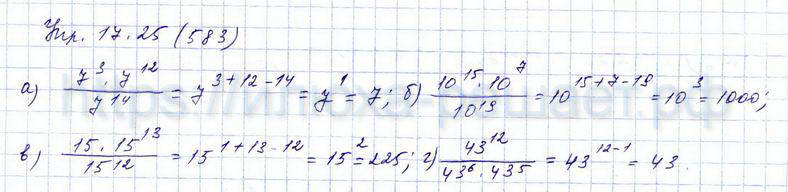 Упр. 17.25 (583)
а) 7³ · 7¹² / 7¹⁴ = 7³⁺¹²⁻¹⁴ = 7¹ = 7; б) 10¹⁵ · 10⁷ / 10¹⁹ = 10¹⁵⁺⁷⁻¹⁹ = 10³ = 1000;
в) 15 · 15¹³ / 15¹² = 15¹⁺¹³⁻¹² = 15² = 225; г) 43¹² / 43⁶ · 43⁵ = 43¹²⁻¹ = 43.